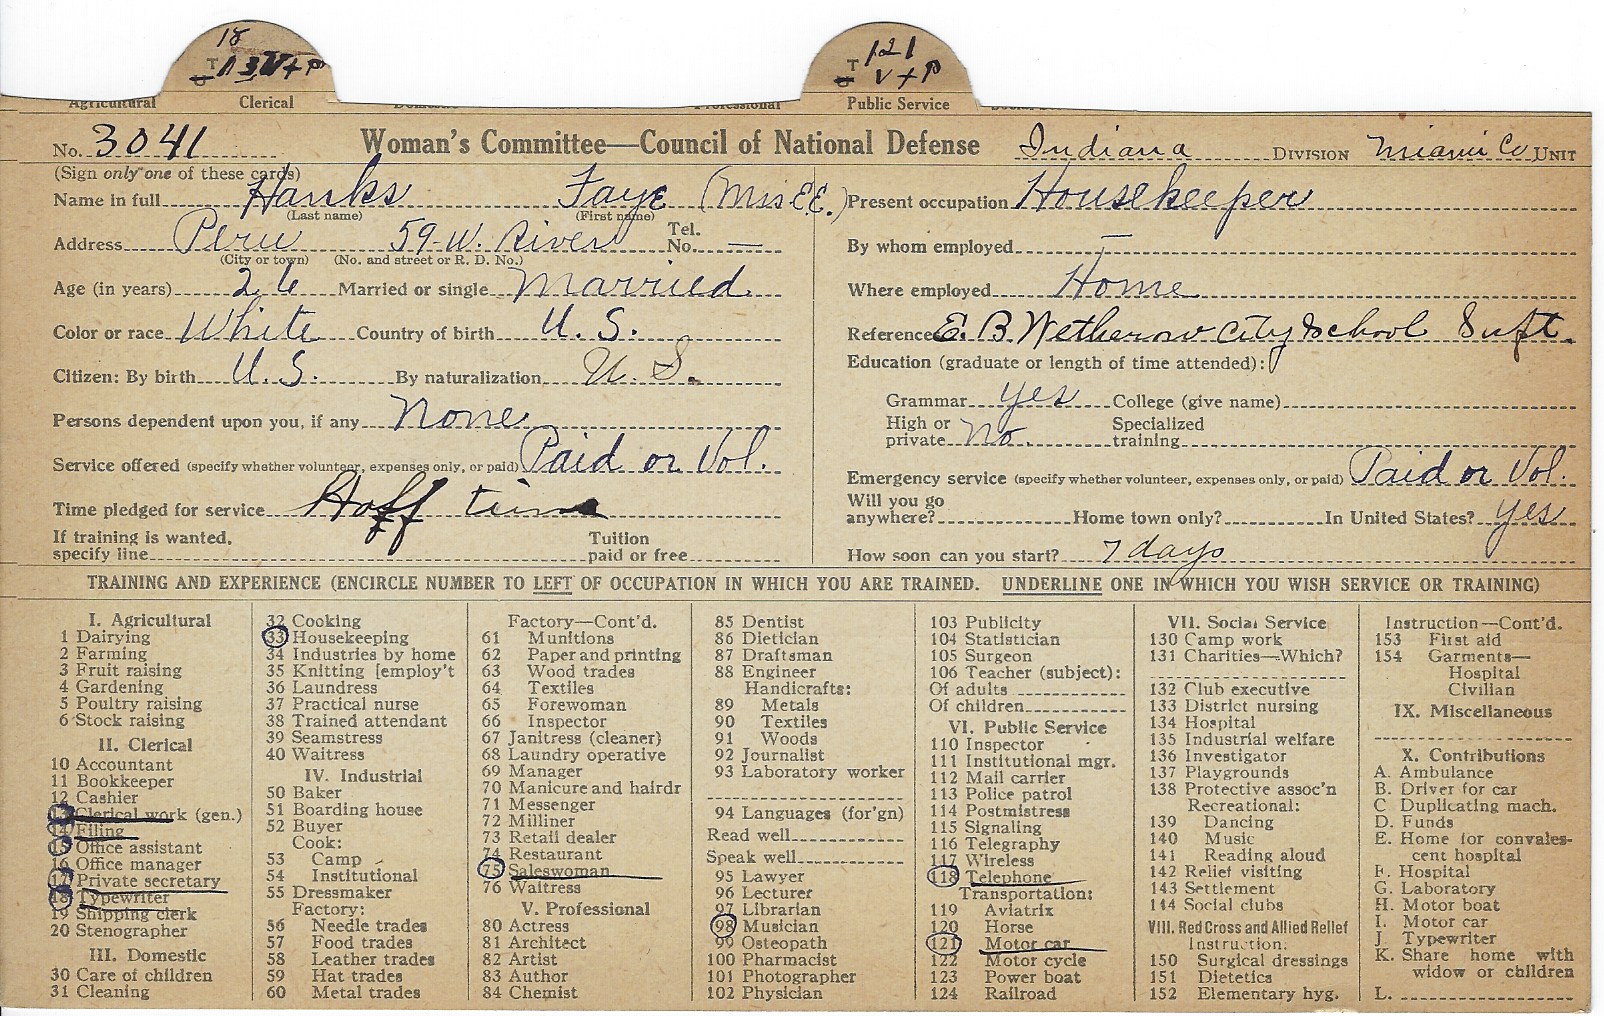 18 121
T T
V + P V + P
Agricultural Clerical Professional Public Service
No. 3041 Woman's Committee—Council of National Defense Indiana DIVISION Miami Co UNIT
(Sign only one of these cards)
Name in full Hanks Faye (Mrs E.E.)
(Last name) (First name)
Address Peru 59-W. River Tel. No. —
(City or town) (No. and street or R. D. No.)
Age (in years) 26 Married or single Married
Color or race White Country of birth U. S.
Citizen: By birth U. S. By naturalization U. S.
Persons dependent upon you, if any None
Service offered (specify whether volunteer, expenses only, or paid) Paid or Vol.
Time pledged for service Haff time
If training is wanted, specify line Tuition paid or free
Present occupation Housekeeper
By whom employed —
Where employed Home
Reference E. B. Wetherow City School Supt.
Education (graduate or length of time attended):
Grammar yes College (give name)
High or private no. Specialized training
Emergency service (specify whether volunteer, expenses only, or paid) Paid or Vol.
Will you go anywhere? Home town only? In United States? yes
How soon can you start? 7 days
TRAINING AND EXPERIENCE (ENCIRCLE NUMBER TO LEFT OF OCCUPATION IN WHICH YOU ARE TRAINED. UNDERLINE ONE IN WHICH YOU WISH SERVICE OR TRAINING)
I. Agricultural
1 Dairying
2 Farming
3 Fruit raising
4 Gardening
5 Poultry raising
6 Stock raising
II. Clerical
10 Accountant
11 Bookkeeper
12 Cashier
13 Clerical work (gen.)
14 Filing
15 Office assistant
16 Office manager
17 Private secretary
18 Typewriter
19 Shipping clerk
20 Stenographer
III. Domestic
30 Care of children
31 Cleaning
32 Cooking
33 Housekeeping
34 Industries by home
35 Knitting [employ't
36 Laundress
37 Practical nurse
38 Trained attendant
39 Seamstress
40 Waitress
IV. Industrial
50 Baker
51 Boarding house
52 Buyer
Cook:
53 Camp
54 Institutional
55 Dressmaker
Factory:
56 Needle trades
57 Food trades
58 Leather trades
59 Hat trades
60 Metal trades
Factory—Cont'd.
61 Munitions
62 Paper and printing
63 Wood trades
64 Textiles
65 Forewoman
66 Inspector
67 Janitress (cleaner)
68 Laundry operative
69 Manager
70 Manicure and hairdr
71 Messenger
72 Milliner
73 Retail dealer
74 Restaurant
75 Saleswoman
76 Waitress
V. Professional
80 Actress
81 Architect
82 Artist
83 Author
84 Chemist
85 Dentist
86 Dietician
87 Draftsman
88 Engineer
Handicrafts:
89 Metals
90 Textiles
91 Woods
92 Journalist
93 Laboratory worker
94 Languages (for'gn)
Read well
Speak well
95 Lawyer
96 Lecturer
97 Librarian
98 Musician
99 Osteopath
100 Pharmacist
101 Photographer
102 Physician
103 Publicity
104 Statistician
105 Surgeon
106 Teacher (subject):
Of adults
Of children
VI. Public Service
110 Inspector
111 Institutional mgr.
112 Mail carrier
113 Police patrol
114 Postmistress
115 Signaling
116 Telegraphy
117 Wireless
118 Telephone
Transportation:
119 Aviatrix
120 Horse
121 Motor car
122 Motor cycle
123 Power boat
124 Railroad
VII. Social Service
130 Camp work
131 Charities—Which?
132 Club executive
133 District nursing
134 Hospital
135 Industrial welfare
136 Investigator
137 Playgrounds
138 Protective assoc'n
Recreational:
139 Dancing
140 Music
141 Reading aloud
142 Relief visiting
143 Settlement
144 Social clubs
VIII. Red Cross and Allied Relief
Instruction:
150 Surgical dressings
151 Dietetics
152 Elementary hyg.
Instruction—Cont'd.
153 First aid
154 Garments—
Hospital
Civilian
IX. Miscellaneous
X. Contributions
A. Ambulance
B. Driver for car
C Duplicating mach.
D. Funds
E. Home for convales-
cent hospital
F. Hospital
G. Laboratory
H. Motor boat
I. Motor car
J Typewriter
K. Share home with
widow or children
L.